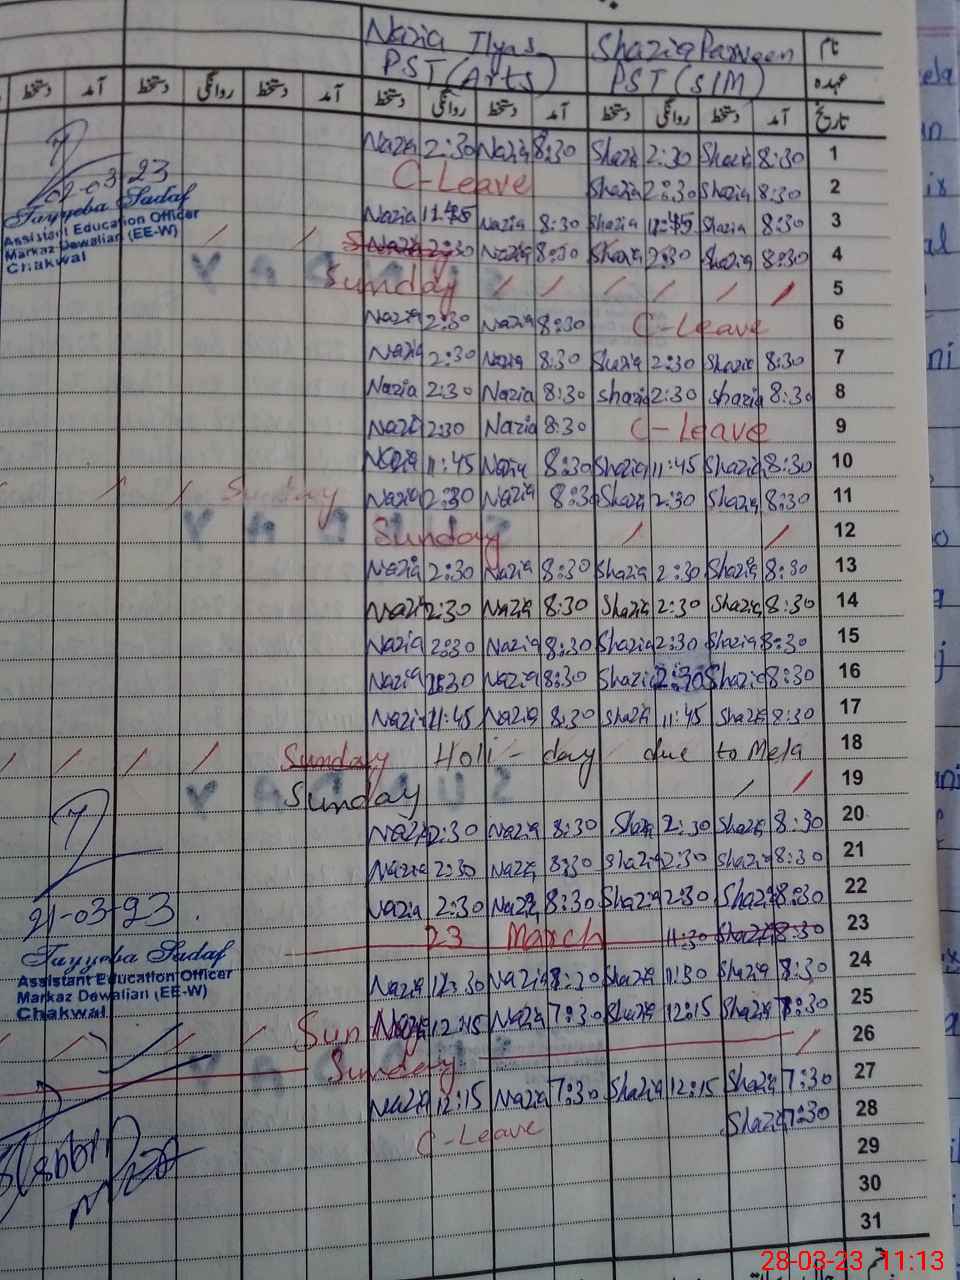 Nazia Ilyas Shazia Parveen نام
PST (Arts) PST (S/M) عہدہ
دستخط آمد دستخط روانگی دستخط آمد دستخط روانگی دستخط آمد دستخط روانگی دستخط آمد تاریخ
Nazia 2:30 Nazia 8:30 Shazia 2:30 Shazia 8:30 1
C-Leave Shazia 2:30 Shazia 8:30 2
02-03-23
Tayyeba Sadaf
Assistant Education Officer
Markaz Dewalian (EE-W)
Chakwal
Nazia 11:45 Nazia 8:30 Shazia 11:45 Shazia 8:30 3
Nazia 2:30 Nazia 8:30 Shazia 2:30 Shazia 8:30 4
SUNDAY
Sunday 5
Nazia 2:30 Nazia 8:30 C-Leave 6
Nazia 2:30 Nazia 8:30 Shazia 2:30 Shazia 8:30 7
Nazia 2:30 Nazia 8:30 Shazia 2:30 Shazia 8:30 8
Nazia 2:30 Nazia 8:30 C-Leave 9
Nazia 11:45 Nazia 8:30 Shazia 11:45 Shazia 8:30 10
Sunday Nazia 2:30 Nazia 8:30 Shazia 2:30 Shazia 8:30 11
SUNDAY
Sunday 12
Nazia 2:30 Nazia 8:30 Shazia 2:30 Shazia 8:30 13
Nazia 2:30 Nazia 8:30 Shazia 2:30 Shazia 8:30 14
Nazia 2:30 Nazia 8:30 Shazia 2:30 Shazia 8:30 15
Nazia 2:30 Nazia 8:30 Shazia 2:30 Shazia 8:30 16
Nazia 11:45 Nazia 8:30 Shazia 11:45 Shazia 8:30 17
Sunday Holi-day due to Mela 18
SUNDAY
Sunday 19
Nazia 2:30 Nazia 8:30 Shazia 2:30 Shazia 8:30 20
Nazia 2:30 Nazia 8:30 Shazia 2:30 Shazia 8:30 21
Nazia 2:30 Nazia 8:30 Shazia 2:30 Shazia 8:30 22
21-03-23
Tayyeba Sadaf
Assistant Education Officer
Markaz Dewalian (EE-W)
Chakwal
23 March 11:30 Shazia 8:30 23
Nazia 11:30 Nazia 8:30 Shazia 11:30 Shazia 8:30 24
Sun Nazia 12:15 Nazia 7:30 Shazia 12:15 Shazia 7:30 25
SUNDAY
Sunday 26
Nazia 12:15 Nazia 7:30 Shazia 12:15 Shazia 7:30 27
C-Leave Shazia 7:30 28
29
30
31
28-03-23 11:13